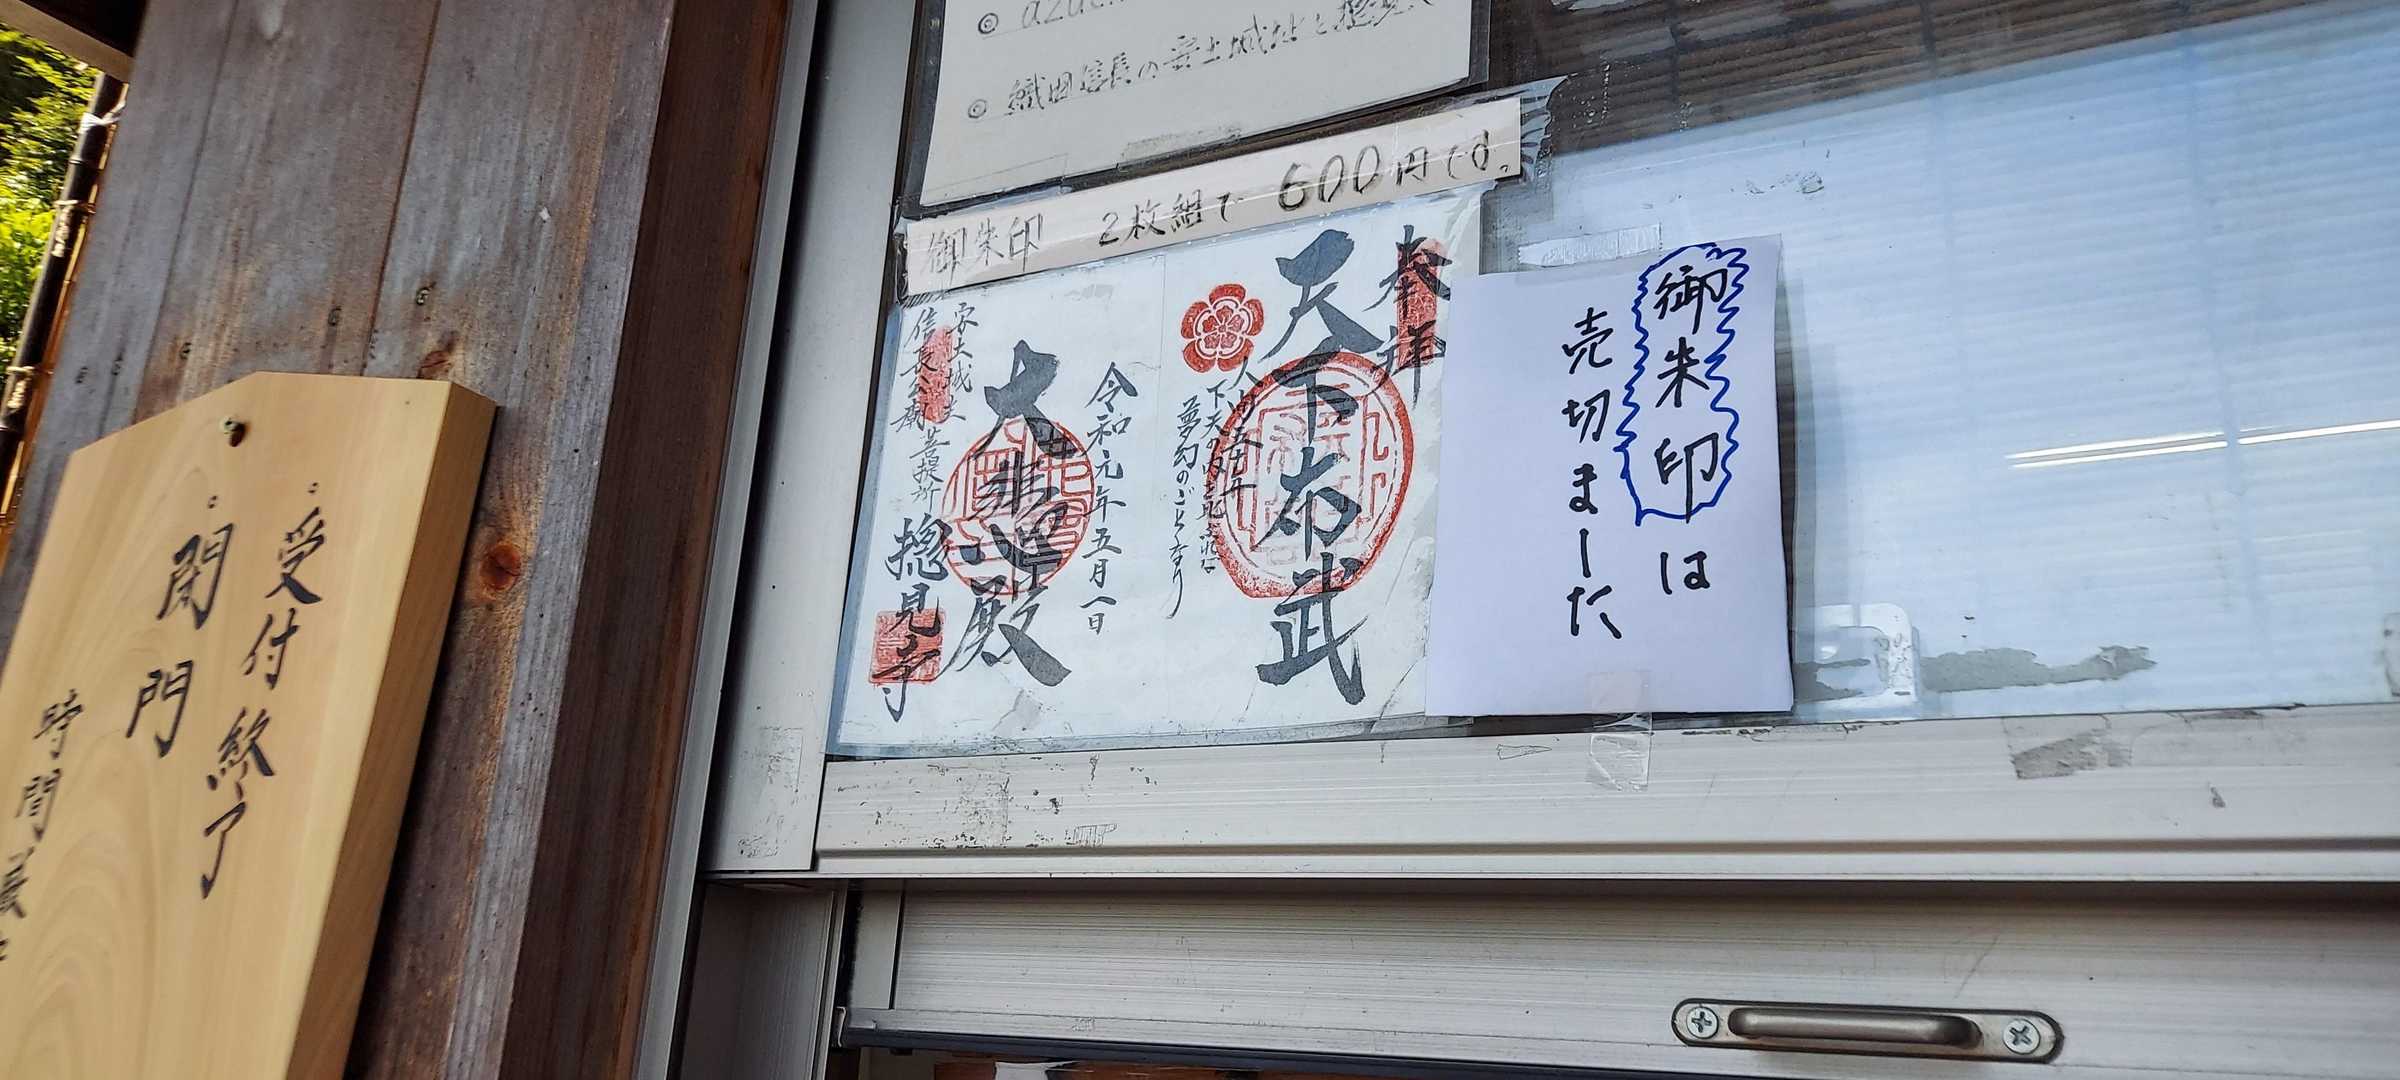 織田信長の安土城址と
御朱印 2枚組で 600円です。
奉拝
天下布武
人間五十年
下天の内を比ぶれば
夢幻のごとくなり
令和元年五月一日
大悲殿
安土城主
信長公廟 菩提所
摠見寺
御朱印は
売切ました
受付終了
閉門
時間厳